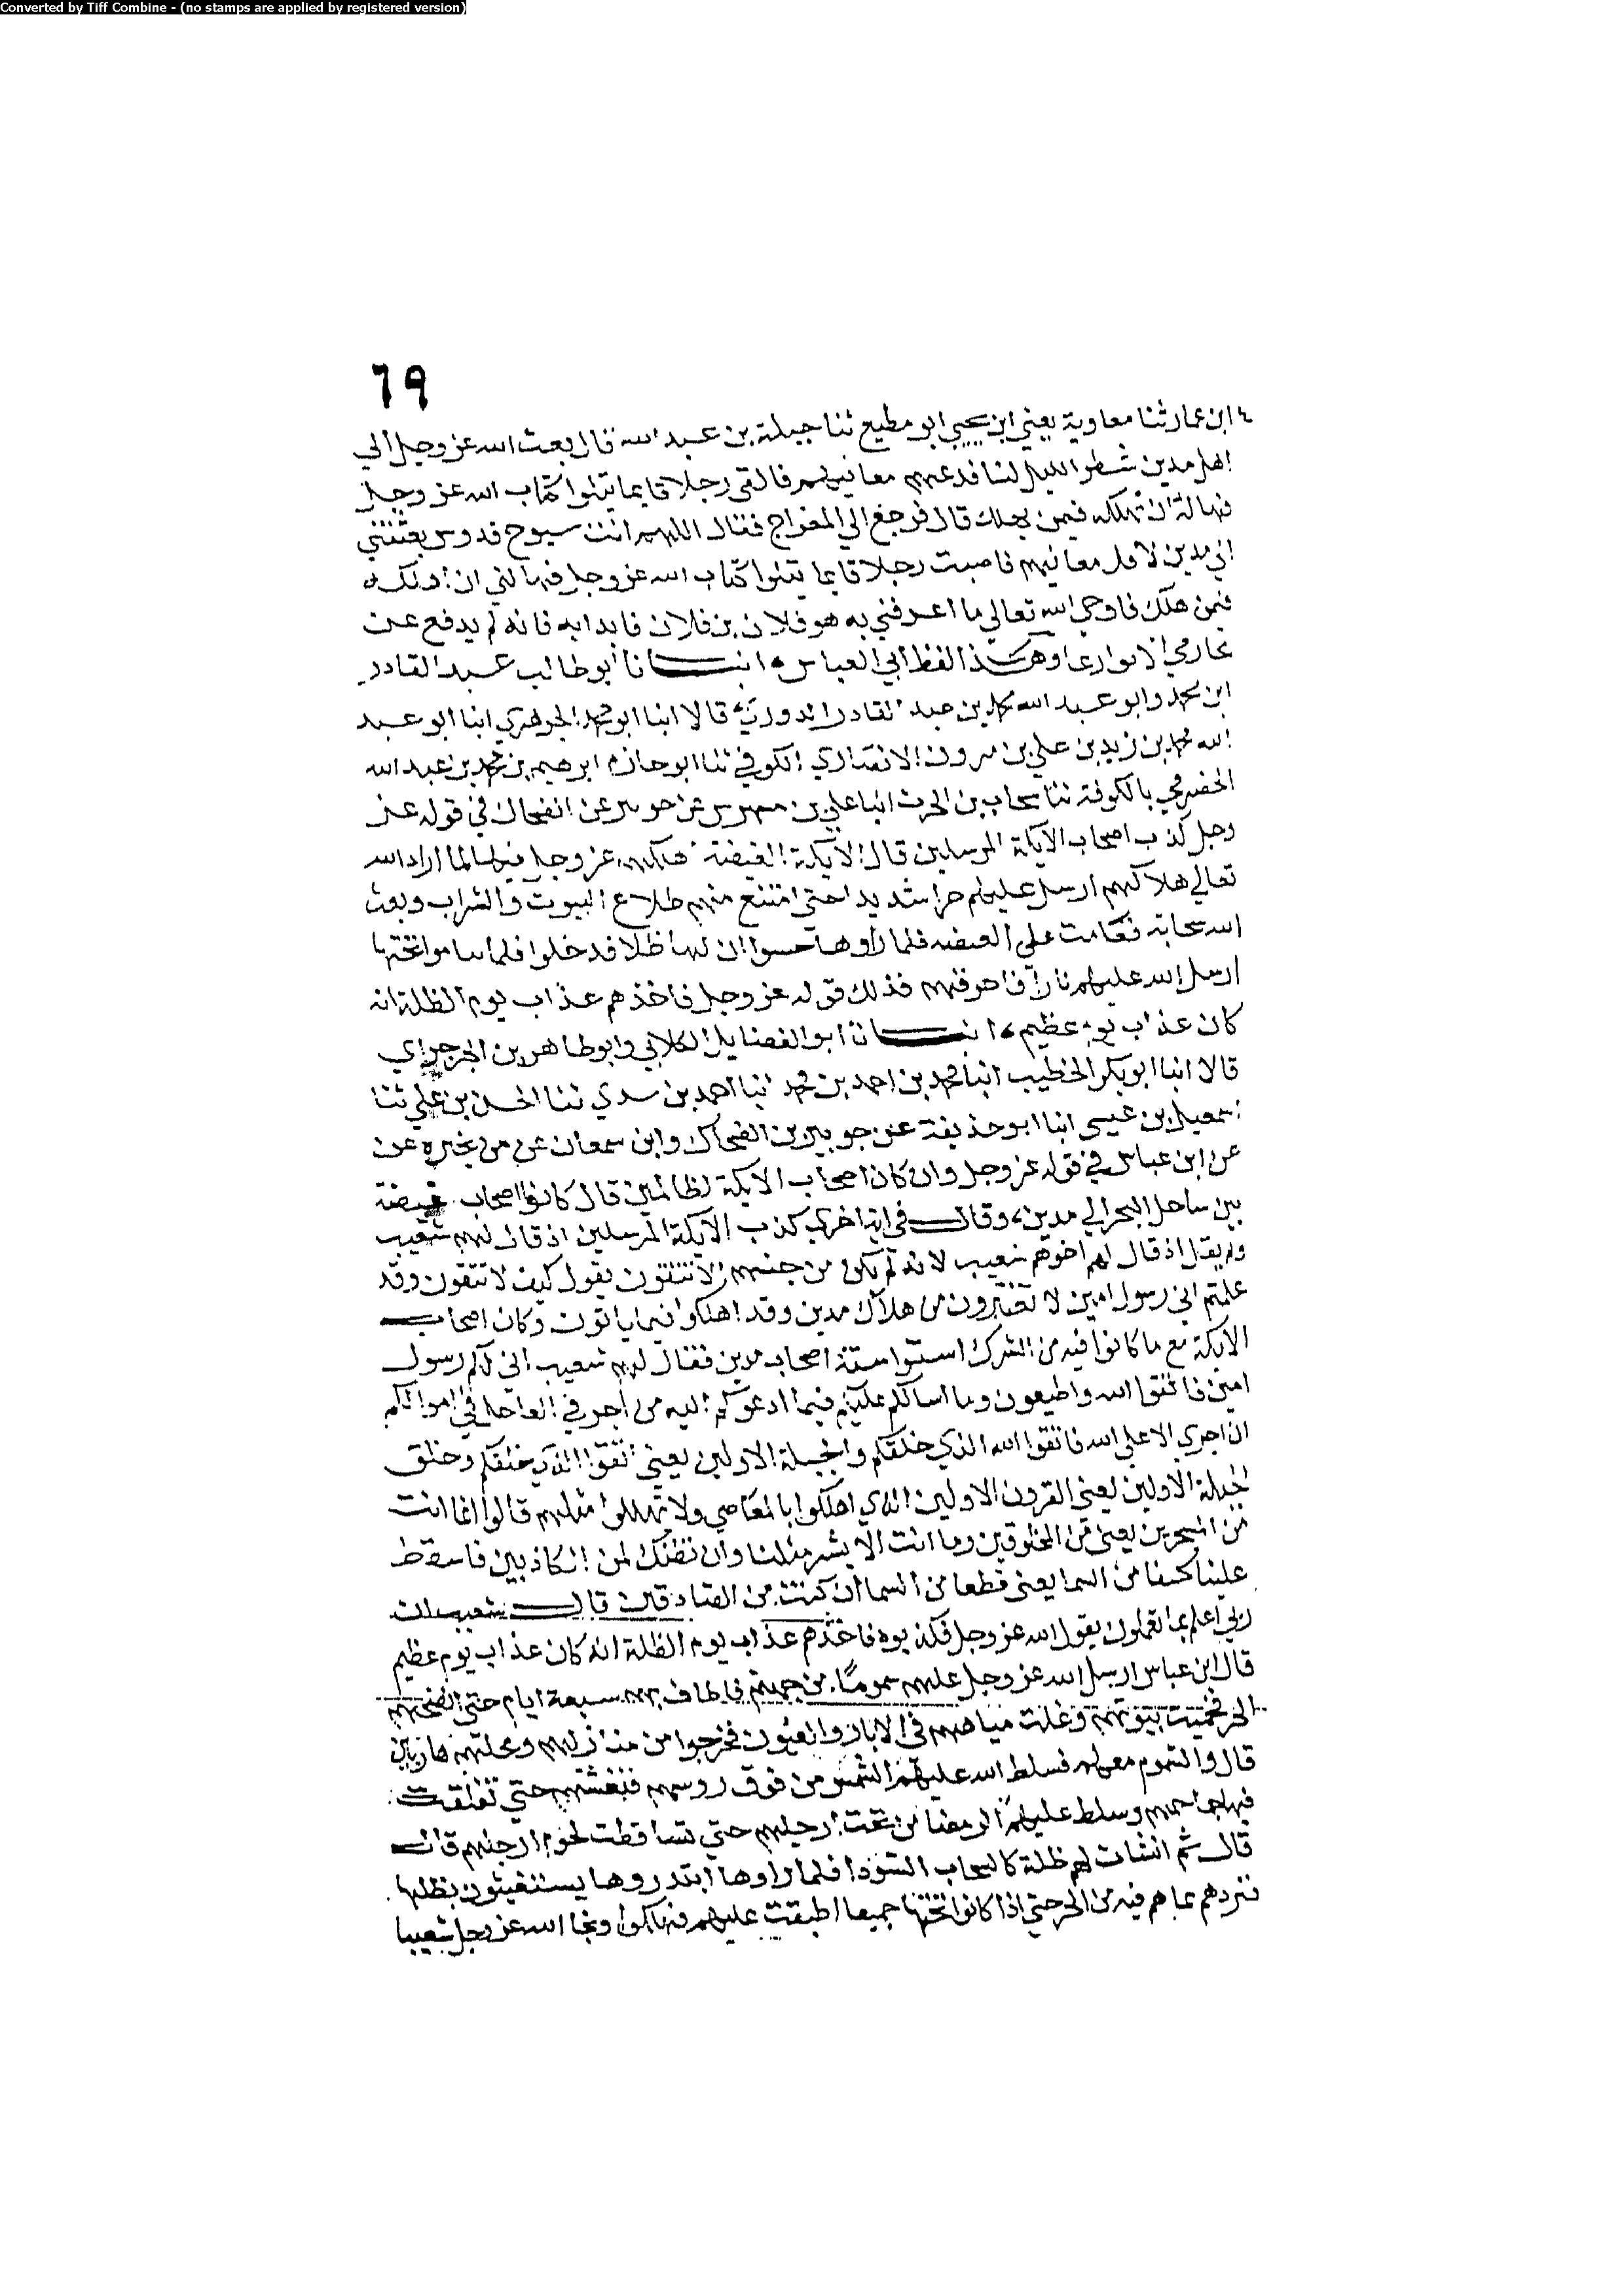 Converted by Tiff Combine - (no stamps are applied by registered version)
٦٩
ابن عمار ثنا معاوية يعني ابن يحيى ابو مطيع ثنا جبلة بن عبد الله قال بعث الله عز وجل الي
اهل مدين شطر الليل لنا فدعهم معانيهم فالقي رجلا قايما يتلوا كتاب الله عز وجل
فهالة ان تهلكه فيمن يهلك قال فرجع الي المعراج فقال اللهم انت سبوح قدوس بعثتني
الي مدين لافل معانيهم فاصبت رجلا قايما يتلوا كتاب الله عز وجل فهالني ان اهلكه
فيمن هلك فاوحي الله تعالي ما اعرفني به هو فلان بن فلان فابدا به فانه لم يدفع عن
محارمي الا موادعا وهكذا لفظ ابي العباس انبانا ابو طالب عبد القادر
ابن محمد وابو عبد الله محمد بن عبد القادر قالا ابنا ابو محمد الجوهري ابنا ابو عبد
الله محمد بن زيد بن علي بن مرون الانصاري الكوفي ثنا ابو حازم ابرهيم بن محمد بن عبد الله
الحضرمي بالكوفة ثنا منجاب بن الحرث انبا علي بن مسهر عن جويبر عن الضحاك في قوله عز
وجل كذب اصحاب الايكة المرسلين قال الايكة الغيضة عز وجل فيها لما اراد الله
تعالي هلاكهم ارسل عليهم حرا شديدا حتي امتنع منهم طلاع البيوت والشراب وبعث
الله سحابة فقامت علي الغيضه فلما راوها حسبوا ان لها ظلا فدخلوا فلما تحتها
ارسل الله عليهم نارا فاحرقتهم فذلك قوله عز وجل فاخذهم عذاب يوم الظلة انه
كان عذاب يوم عظيم انبانا ابو الفضايل الكلابي وابو طاهر بن الجرجراي
قالا انبا ابو بكر الخطيب انبا محمد بن احمد بن محمد انبا احمد بن سندي ثنا الحسن بن علي ثنا
اسمعيل بن عيسى ابنا ابو حذيفة عن جويبر بن الضحاك وابن سمعان عن من يخبره عن
عن ابن عباس في قوله عز وجل وان كان اصحاب الايكة لظالمين قال كانوا اصحاب غيضة
بين ساحل البحر الي مدين وقال في اية اخري كذب الايكة المرسلين اذ قال لهم شعيب
ولم يقل اذ قال لهم اخوهم شعيب لانه لم يكن من جنسهم الا تتقون يقول كيف لا تتقون وقد
علمتم اني رسول امين لا تعتبرون من هلاك مدين وقد اهلكوا فيما ياتون وكان اصحاب
الايكة مع ما كانوا فيه من الشرك استنوا سنة اصحاب مدين فقال لهم شعيب اني لكم رسول
امين فاتقوا الله واطيعون وما اسالكم عليكم فيما ادعوكم اليه من اجر في العاجل في اموالكم
ان اجري الا علي الله فاتقوا الله الذي خلقكم والجبلة الاولين يعني اتقوا الذي خلقكم وخلق
الجبلة الاولين يعني القرون الاولين الذي اهلكوا بالمعاصي ولا تهلكوا مثلهم قالوا انما انت
من المسحرين يعني من المخلوقين وما انت الا بشر مثلنا وان نظنك لمن الكاذبين فاسقط
علينا كسفا من السما يعني قطعا من السما ان كنت من الصادقين قال شعيب
ربي اعلم بما تعملون يقول الله عز وجل فكذبوه فاخذهم عذاب يوم الظلة انه كان عذاب يوم عظيم
قال ابن عباس ارسل الله عز وجل عليهم سموما من جهنم فاطاف بهم سبعة ايام حتي انضجهم
الحر فحميت بيوتهم وغلت مياههم في الابار والعيون فخرجوا من منازلهم ومحلتهم هاربين
قال والسموم معهم فسلط الله عليهم الشمس من فوق روسهم فتغشتهم حتي تفلقت
فيها جماجمهم وسلط عليهم الرمضا من تحت ارجلهم حتي تساقطت لحوم ارجلهم قال
قال ثم انشات لهم ظلة كالسحاب السودا فلما راوها ابتدروها يستغيثون بظلها
تبردهم مما هم فيه من الحر حتي اذا كانوا تحتها جميعا اطبقت عليهم فهلكوا ونجا الله عز وجل شعيبا